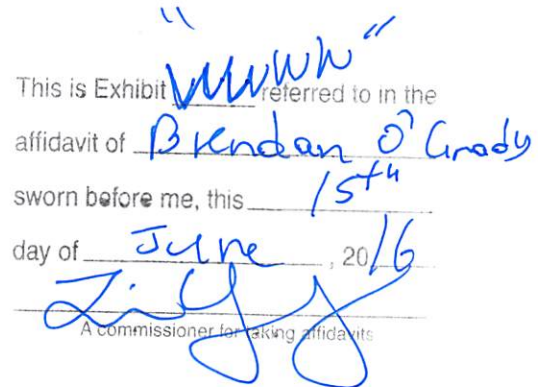 This is Exhibit " " referred to in the
affidavit of Brendan O'Grady
sworn before me, this 15th
day of June, 2016
A commissioner for taking affidavits